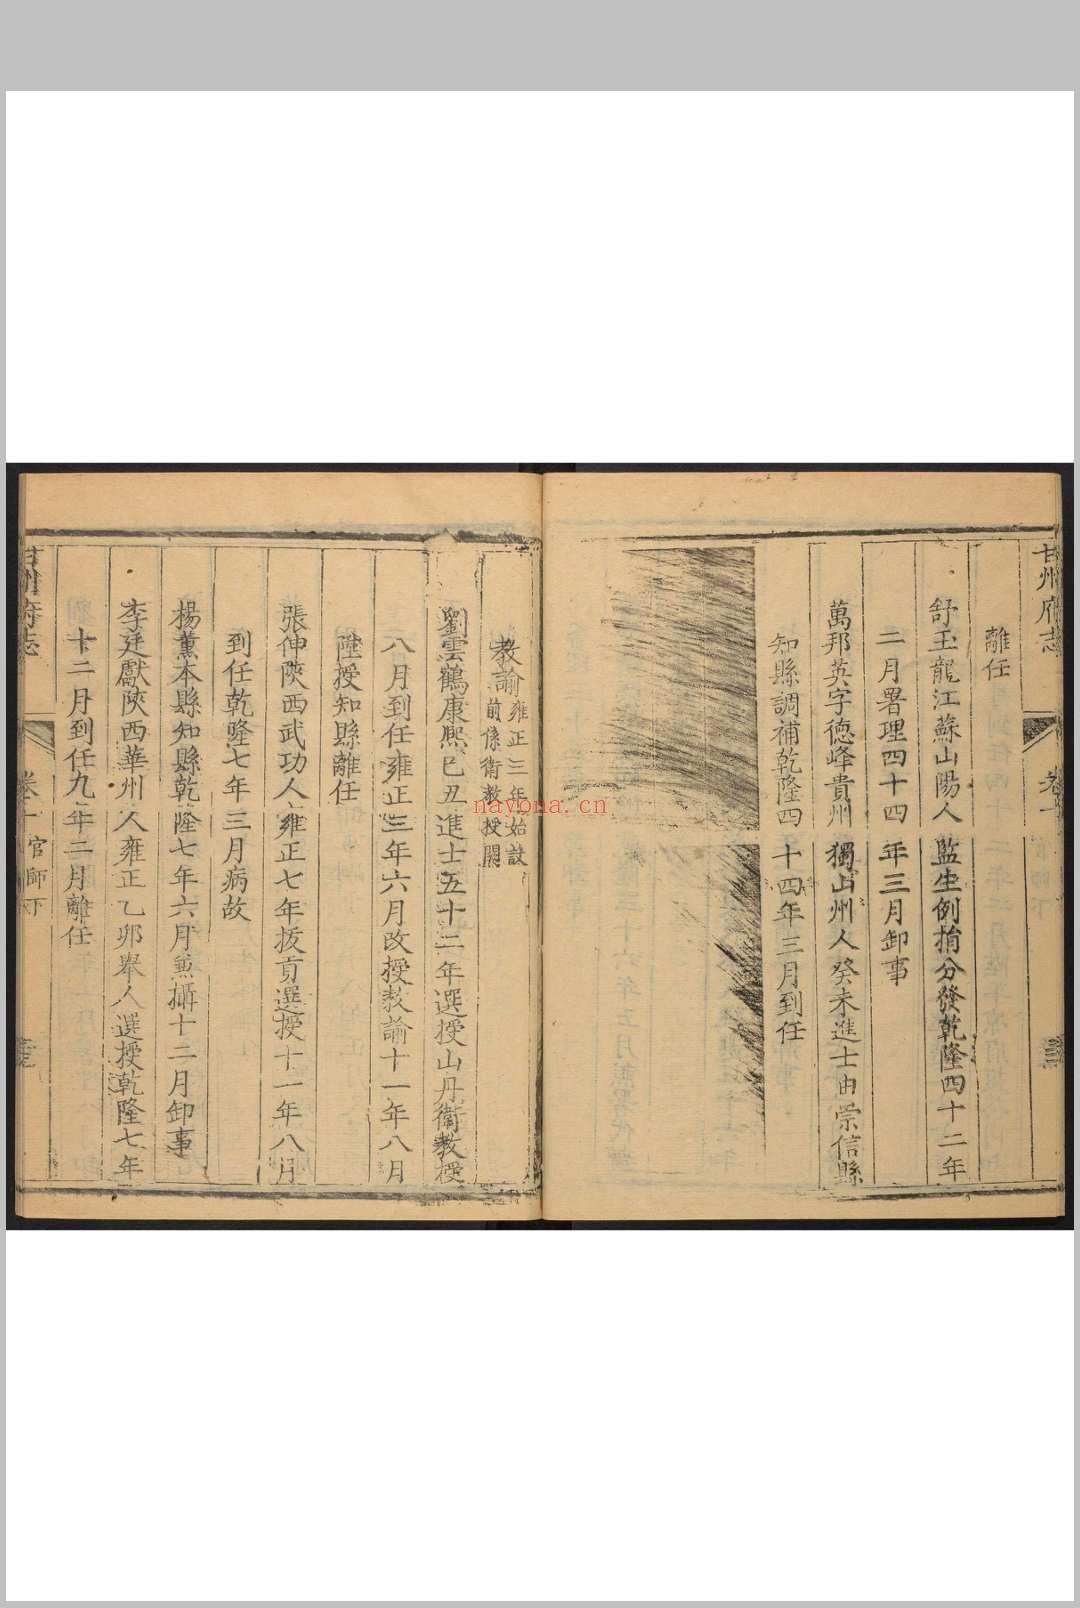 甘州府志
離任
舒玉龍江蘇山陽人監生例捐分發乾隆四十二年
二月署理四十四年三月卸事
萬邦英字德峰貴州獨山州人癸未進士由崇信縣
知縣調補乾隆四十四年三月到任
教諭雍正三年始設
前係衛教授關
劉雲鶴康熙己丑進士五十二年選授山丹衛教授
八月到任雍正三年六月改授教諭十一年八月
陞授知縣離任
張伸陝西武功人雍正七年拔貢選授十一年八月
到任乾隆七年三月病故
楊薰本縣知縣乾隆七年六月兼攝十二月卸事
李廷獻陝西華州人雍正乙卯舉人選授乾隆七年
十二月到任九年二月離任
甘州府志
官師下
navona.cn